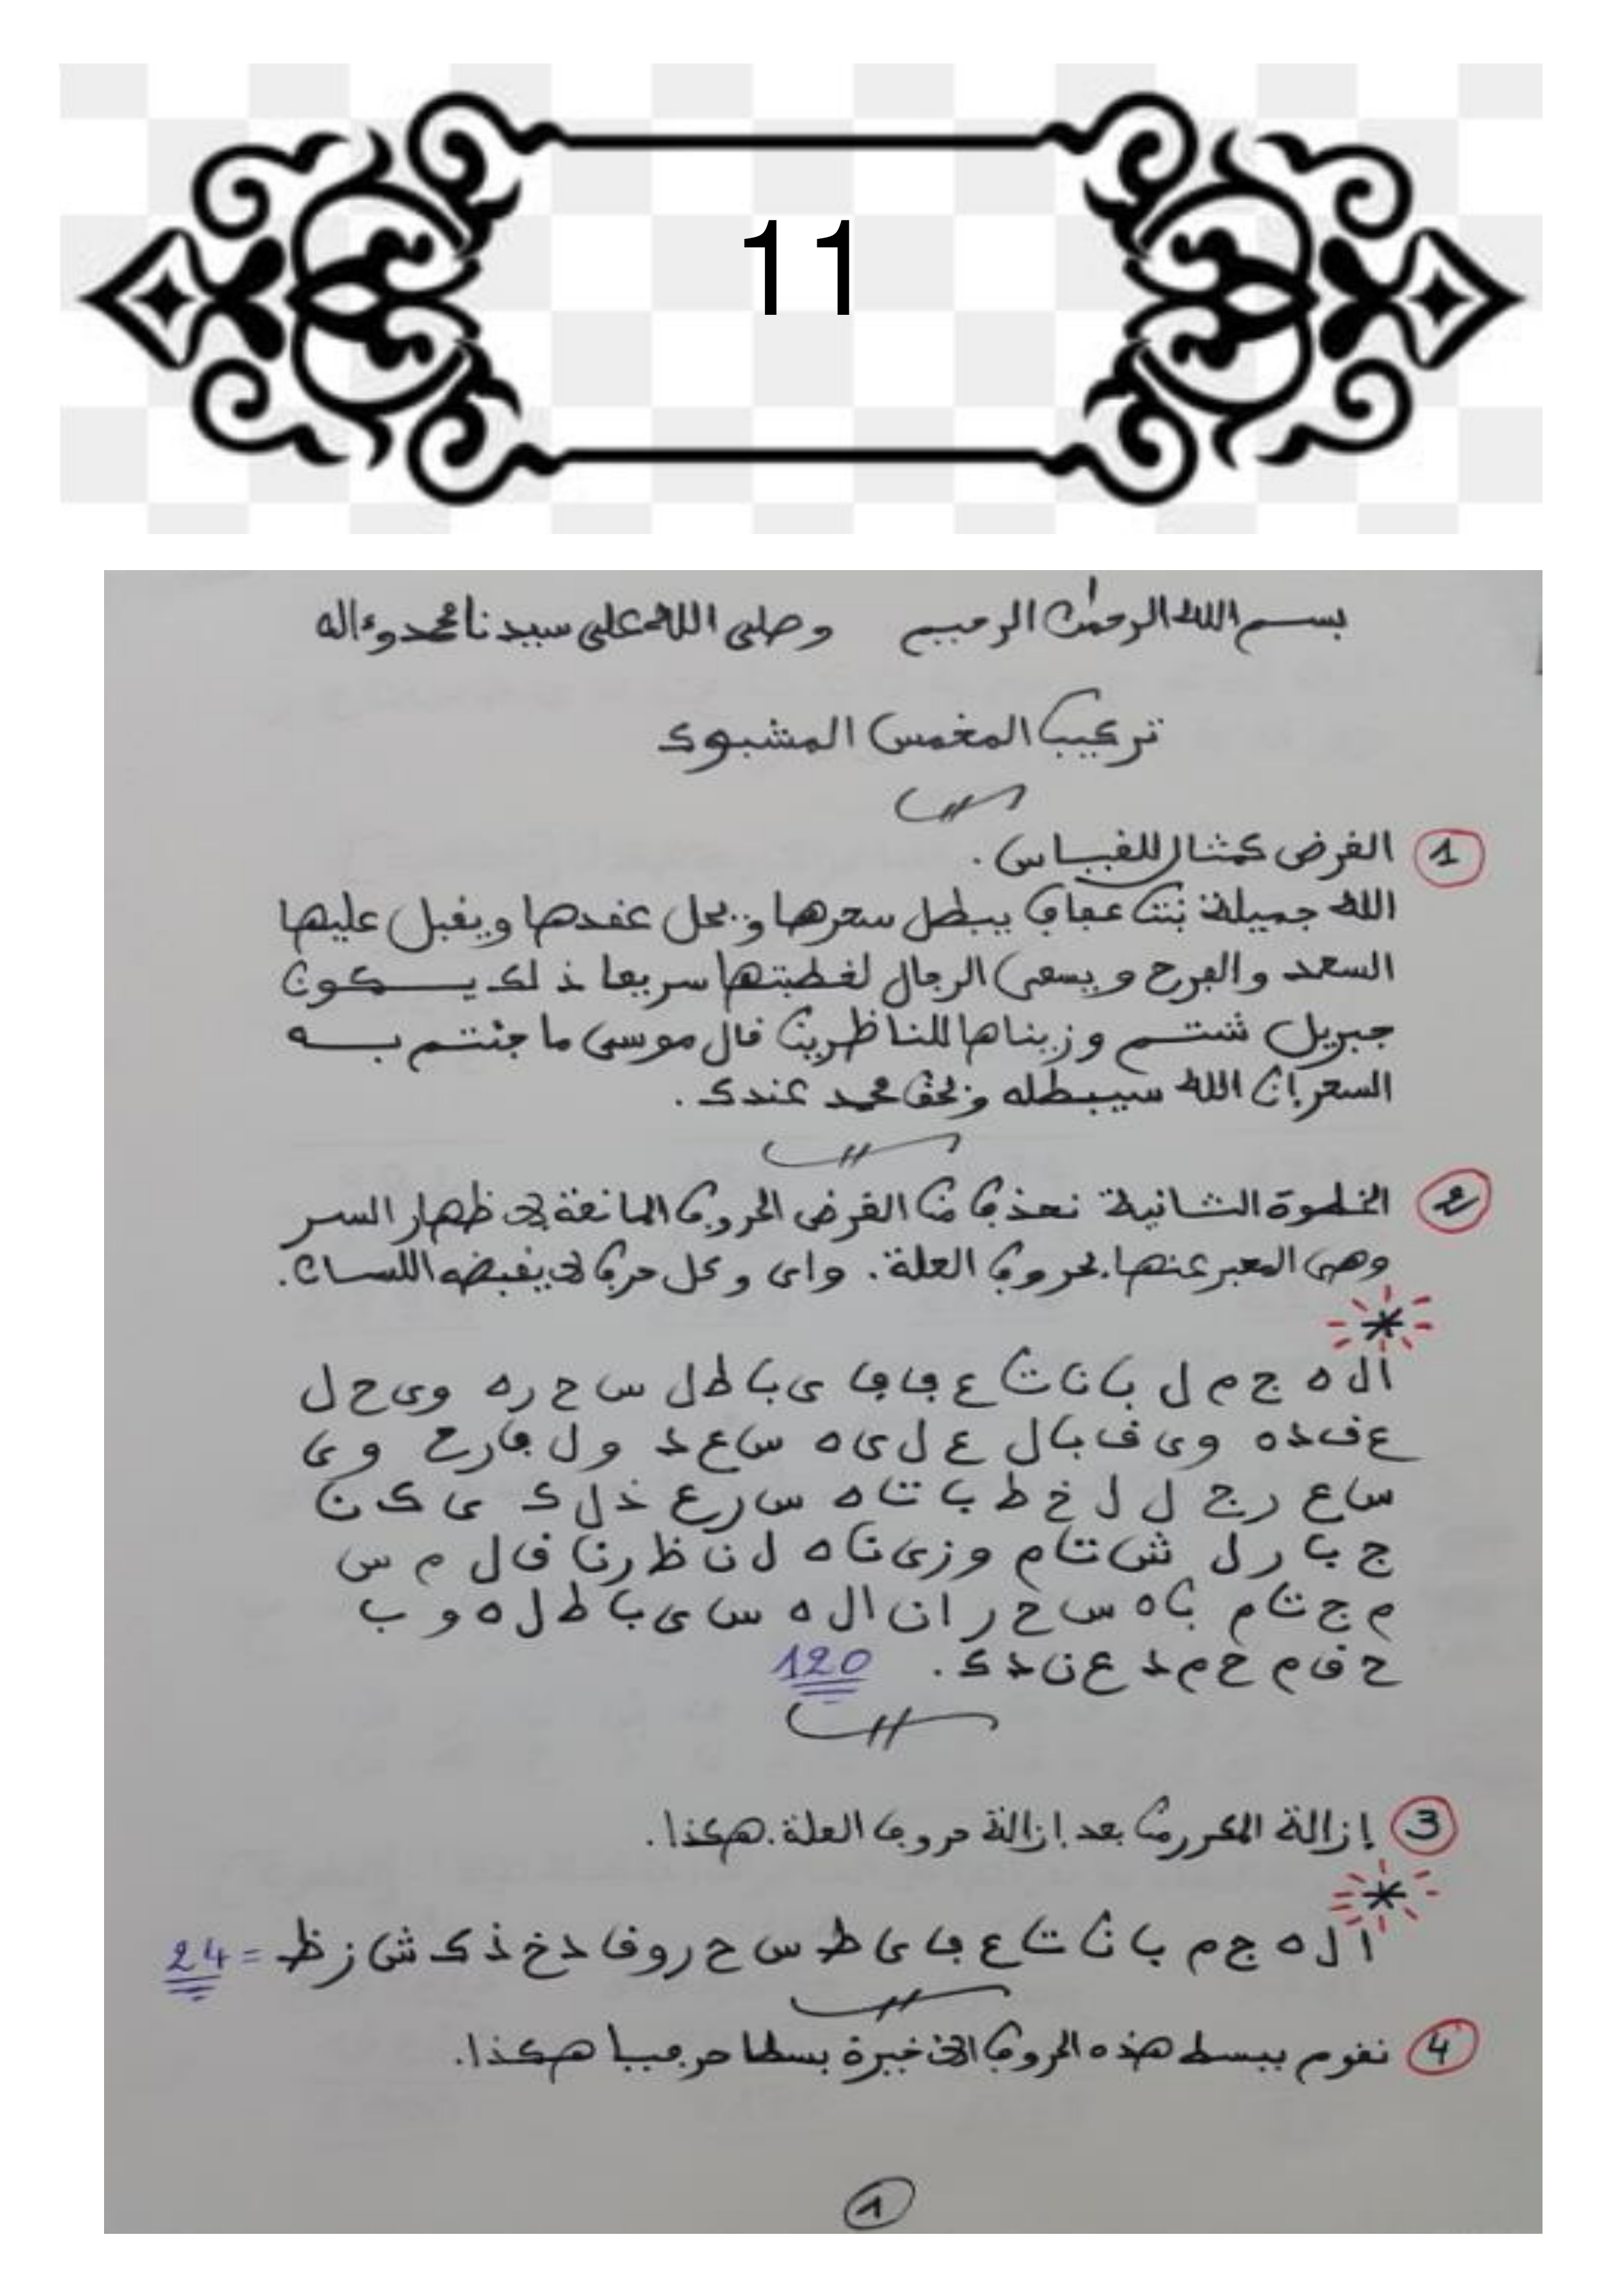 11
بسم الله الرحمن الرحيم وصلى الله على سيدنا محمد وءاله
تركيب المخمس المشبوك
1 الغرض كمثال للقياس.
الله جميلة بنت عفاف يبطل سحرها ويحل عقدها ويقبل عليها
السعد والفرح ويسعى الرجال لخطبتها سريعا ذلك يكون
جبريل شتم وزيناها للناظرين قال موسى ما جئتم به
السحر إن الله سيبطله وبحق محمد عندك.
2 الخطوة الثانية نحذف من الغرض الحروف المانعة في ظهار السر
وهي المعبر عنها بحروف العلة. واى وكل حرف لا يقبضه اللسان.
*
ا ل ه ج م ل ب ن ت ع ف ف ى ب ط ل س ح ر ه و ى ح ل
ع ق د ه و ى ق ب ل ع ل ى ه س ع د و ل ف ر ح و ى
س ع ر ج ل ل خ ط ب ت ه س ر ع ذ ل ك ى ك ن
ج ب ر ل ش ت م و ز ى ن ه ل ن ظ ر ن ق ا ل م س
م ج ت م ب ه س ح ر ا ن ا ل ه س ى ب ط ل ه و ب
ح ق م ح م د ع ن د ك. 120
3 إزالة المكرر من بعد إزالة حروف العلة. هكذا.
*
ا ل ه ج م ب ن ت ع ف ى ط س ح ر و ق د خ ذ ك ش ز ظ = 24
4 نقوم ببسط هذه الحروف الاخيرة بسطا حرفيا هكذا.
1